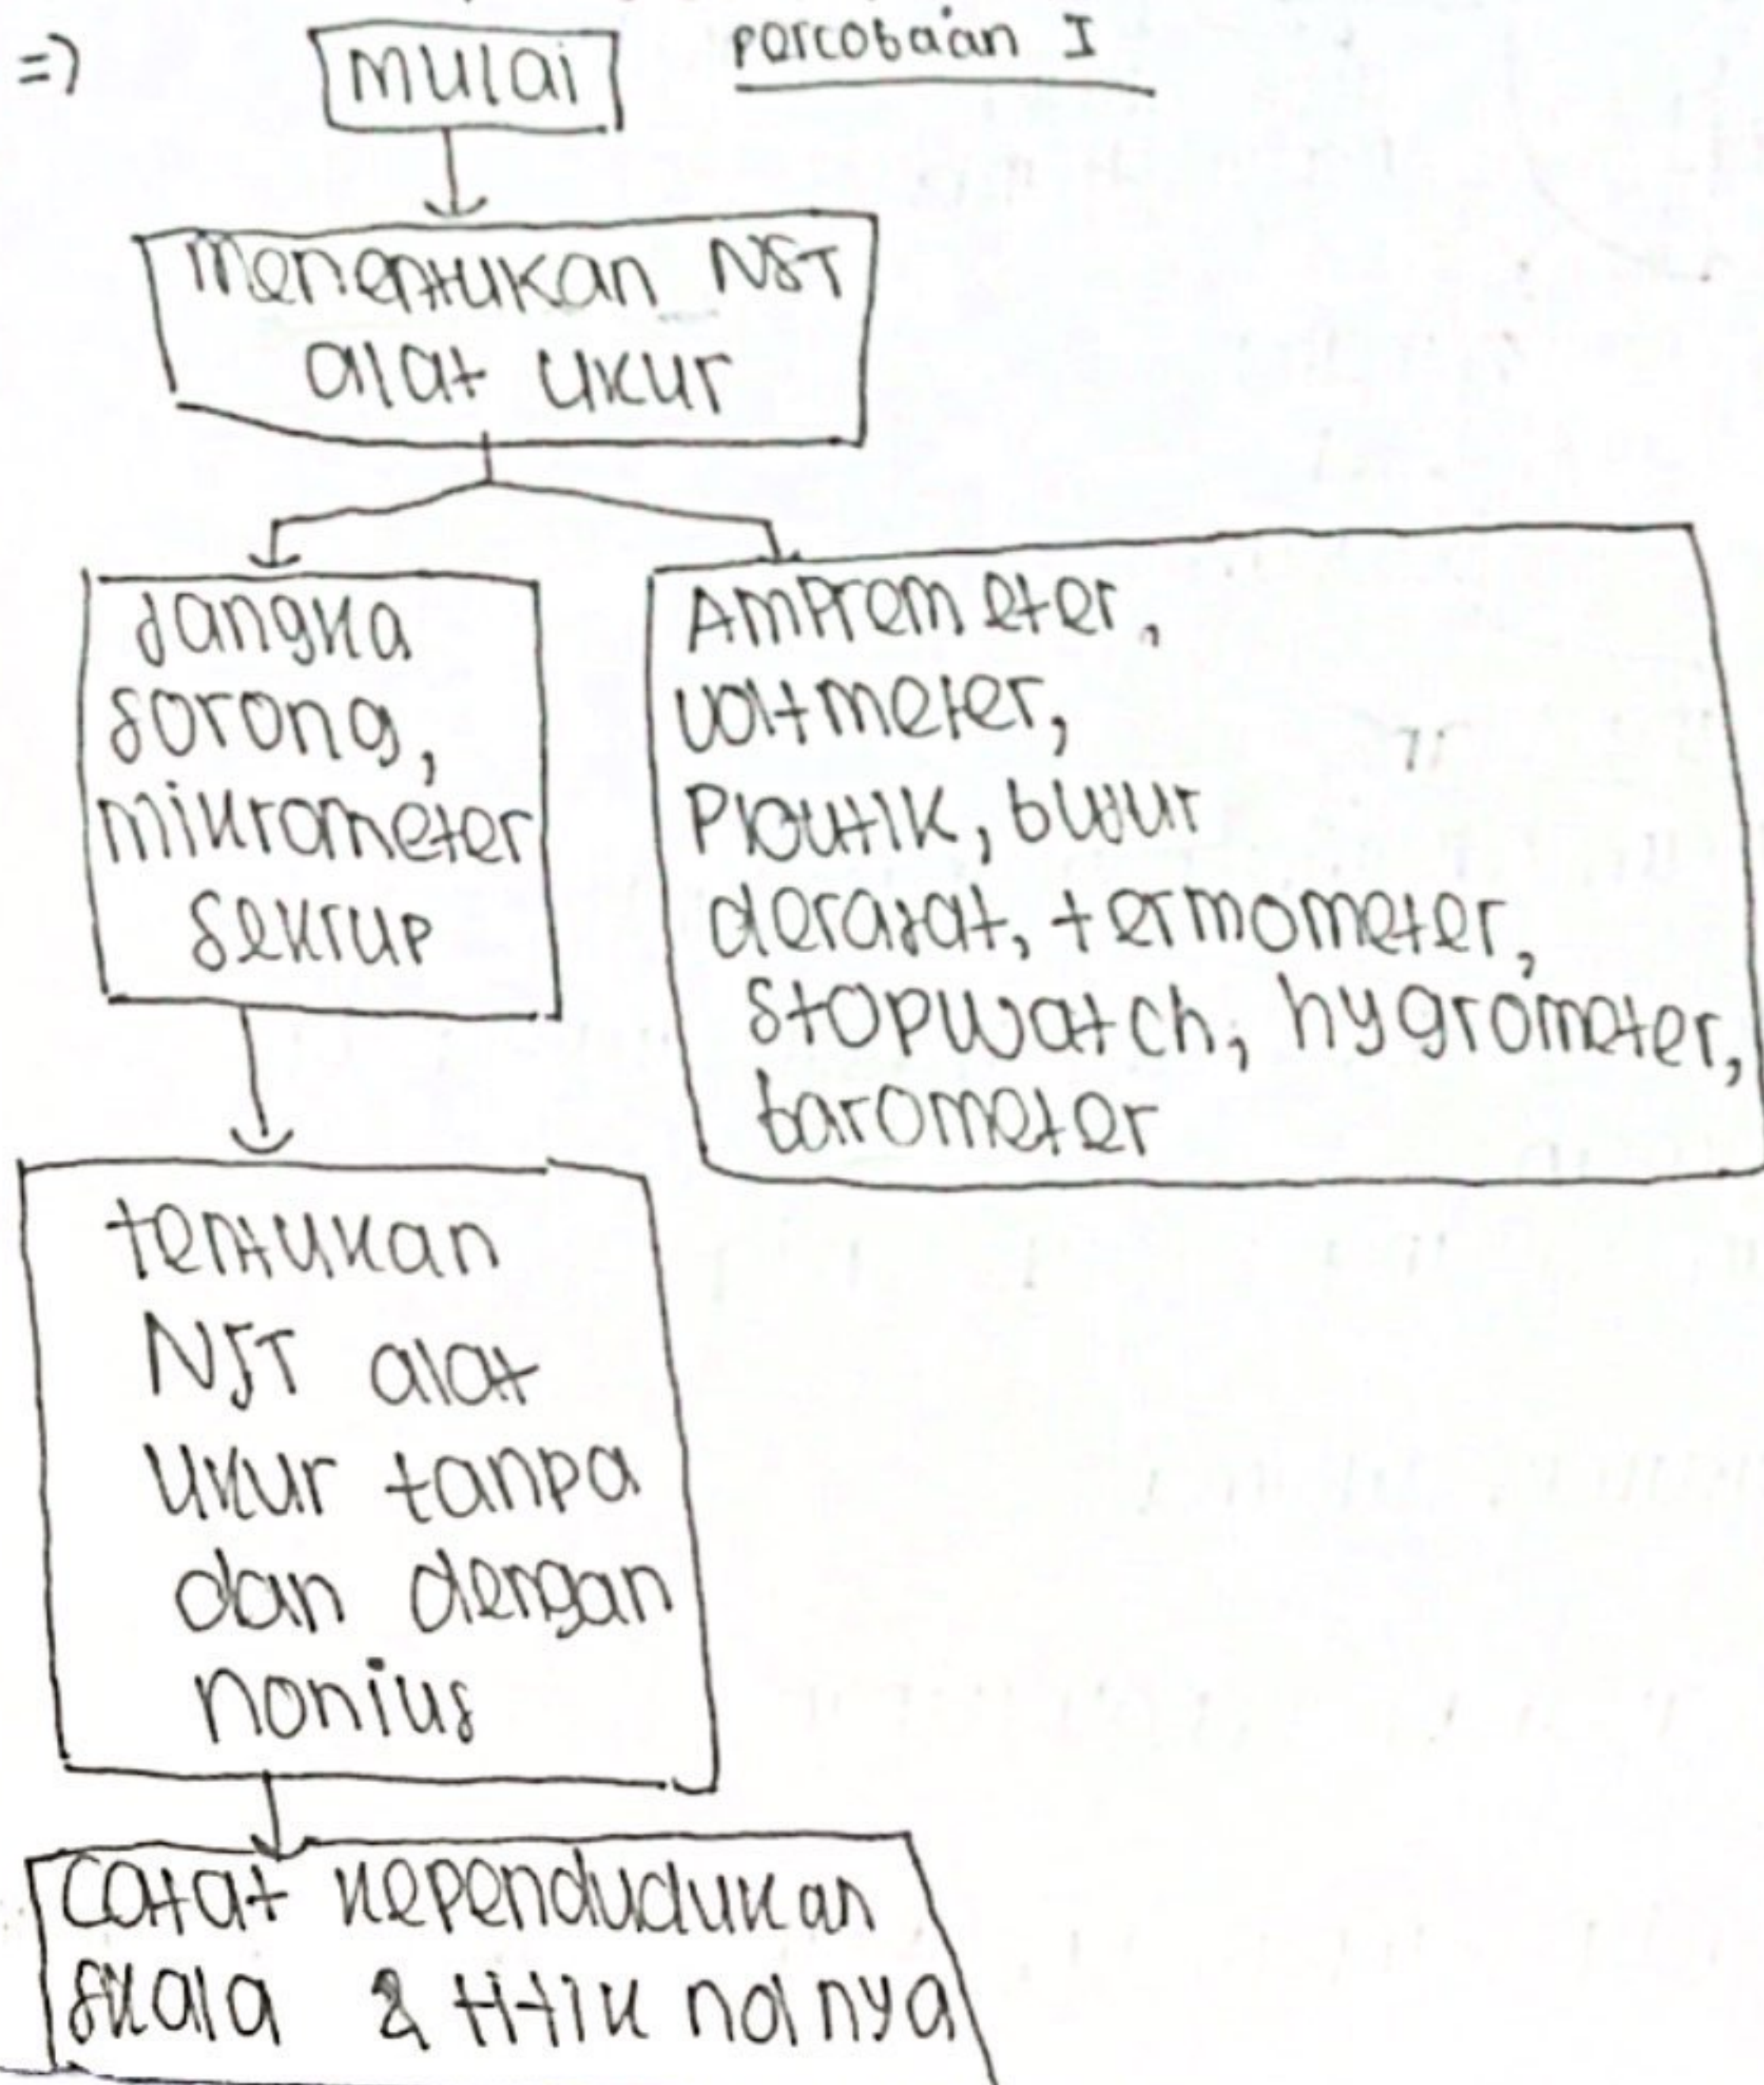 => mulai percobaan I
menentukan NST
alat ukur
Jangka
sorong,
mikrometer
sekrup
Ampremeter,
voltmeter,
busur
derajat, termometer,
stopwatch, hygrometer,
barometer
tentukan
NST alat
ukur tanpa
dan dengan
nonius
Catat kependudukan
skala & titik nolnya